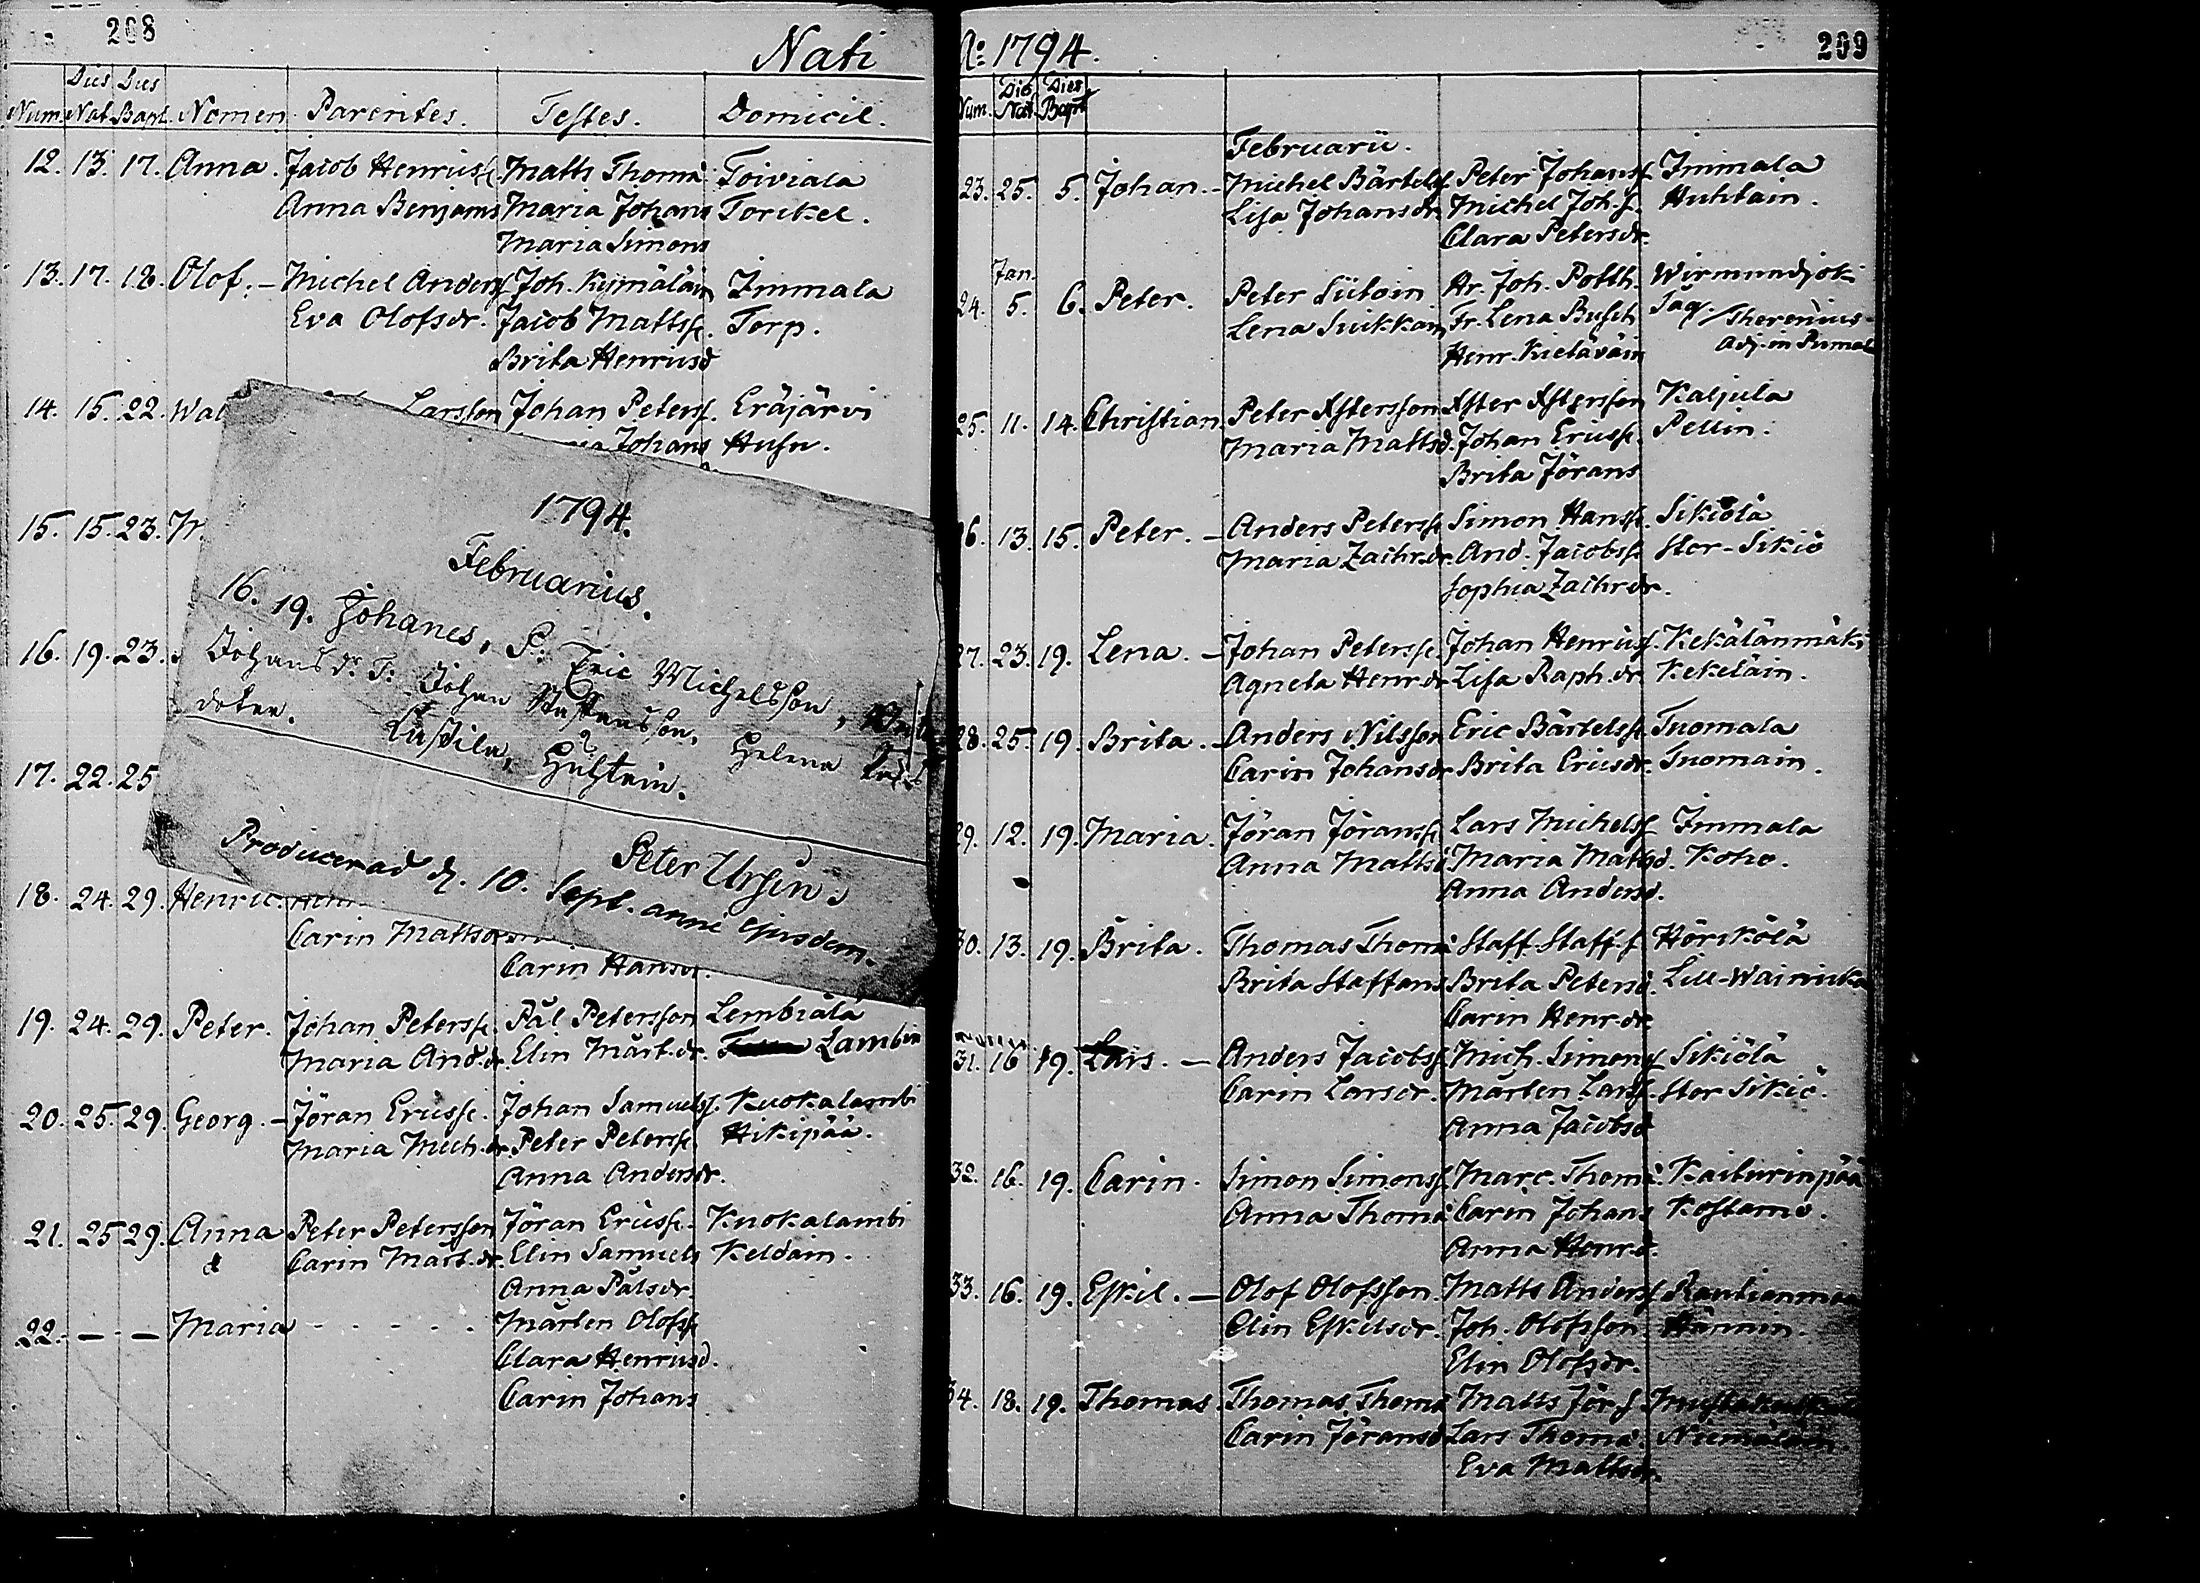 208
Nati
Dies Dies
Num. Nat. Bapt. Nomen. Parentes. Testes. Domicil.
12. 13. 17. Anna. Jacob Henricss. Matts Thomæ Toiviala
Anna Benjams Maria Johans Torikel.
Maria Simons
13. 17. 18. Olof. – Michel Anderss Joh. Kymäläin Immala
Eva Olofsdr. Jacob Mattss. Torp.
Brita Henricsd
14. 15. 22. Larsson Johan Peterss. Eräjärvi
Johans Husu.
15. 15. 23.
16. 19. 23.
17. 22. 25
1794.
Februarius.
16. 19. Johanes, P. Eric Michelsson,
Johansdr T. Johan Staffansson, Helena
doter. Huhtain.
Peter Ursin.
Producerad d. 10. Sept. anni ejusdem.
18. 24. 29. Henric.
Carin Matts
Carin Hansd.
19. 24. 29. Peter. Johan Peterss. Pål Petersson Lembiälä
Maria And.dr. Elin Mårt.dr. Lambin
20. 25. 29. Georg. – Jöran Ericss. Johan Samuelss. Kuokalambi
Maria Mich.dr. Peter Peterss. Hikipää.
Anna Andersdr.
21. 25 29. Anna Peter Petersson Jöran Ericss. Kuokalambi
& Carin Mårt.dr. Elin Samuels Keldain.
Anna Pålsdr.
22. – – Maria - - - - - Mårten Olofss
Clara Henricsd.
Carin Johans
Ao: 1794.
209
Num. Die Nat. Dies Bapt
Februarii.
23. 25. 5. Johan. – Michel Bärtelss Peter Johanss Immala
Lisa Johansdr Michel Joh.s. Huhtain.
Clara Petersdr.
Jan.
24. 5. 6. Peter. Peter Siitoin Hr. Joh. Poth. Wirmundjoki
Lena Suikkain Fr. Lena Busch Täg. / Therenius
Henr. Kietäväin Adj. in Pumal
25. 11. 14. Christian. Peter Xstersson Xster Xstersson Kaljula
Maria Mattsd. Johan Ericss. Pellin.
Brita Jörans
26. 13. 15. Peter. – Anders Peterss. Simon Hanss. Sikiölä
Maria Zachr.dr. And. Jacobss. Stor-Sikiö
Sophia Zachrdr.
27. 23. 19. Lena. – Johan Peterss. Johan Henricss. Kekälänmäki
Agneta Henr.dr Lisa Raph.dr. Kekeläin.
28. 25. 19. Brita. – Anders Nilsson Eric Bärtelss. Tuomala
Carin Johansdr Brita Ericsdr. Tuomain.
29. 12. 19. Maria. Jöran Jöranss. Lars Michelss Immala
Anna Mattsd Maria Mattsd. Koho.
Anna Andersd.
30. 13. 19. Brita. Thomas Thomæ Staff. Staff.s Härskölä
Brita Staffans Brita Petersd. Lill-Wainicka
Carin Henr.dr.
31. 16 19. Lars. – Anders Jacobss. Mich. Simonss Sikiölä
Carin Larsdr. Mårten Larss. Stor Sikiö.
Anna Jacobsd
32. 16. 19. Carin. Simon Simonss. Marc. Thomæ. Kaiturinpää
Anna Thomæ Carin Johans Kostamo.
Anna Henrd.
33. 16. 19. Eskil. – Olof Olofsson. Matts Anderss Rautianmaa
Elin Eskilsdr. Joh. Olofsson. Hännin.
Elin Olofsdr.
34. 18. 19. Thomas. Thomas Thomæ Matts Jör.s.
Carin Jöransd Lars Thomæ. Niemäläin.
Eva Mattsdr.